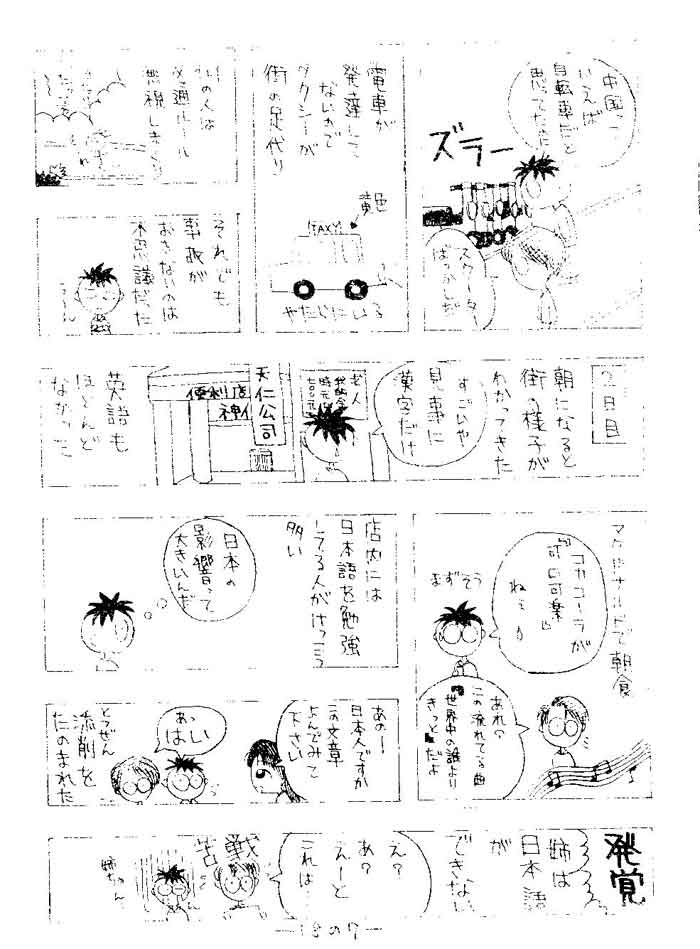 中国って
いえば
自転車だと
思ってたた
ズラー
スクーター
ばっかしだ
電車が
発達して
ないので
タクシーが
街の足代り
黄色
TAXI
やたらにいる
の人は
交通ルール
無視しまくる
それでも
事故が
おきないのは
不思議だった
うーん
2日目
朝になると
街の様子が
わかってきた
すごいや
見事に
漢字だけ
老人
天仁公司
便利店
神
英語も
ほとんど
なかった
マクドナルドで朝食
コカコーラが
『可口可楽』
ねぇ
まずそう
あれ?
この流れてる曲
"世界中の誰より
きっと"だよ
店内には
日本語を勉強
してる人がけっこう
多い
日本の
影響って
大きいんだ
あのー
日本人ですか
この文章
よんでみて
下さい
あっ
はい
とつぜん
添削を
たのまれた
発覚
姉は
日本語
が
できない
え?
あ?
えーと
これは…
苦戦
姉ちゃん…
—18の7—